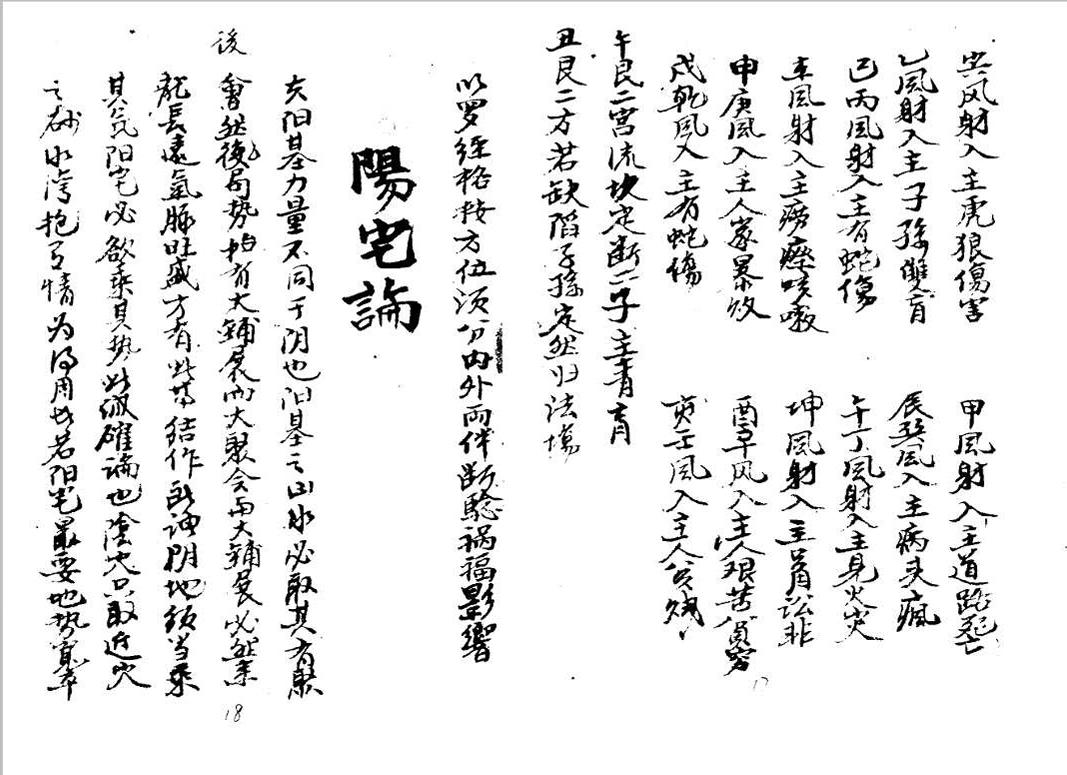 风射入主虎狼傷害 甲風射入主道路死亡
乙風射入主子孫雙盲 辰巽風入主病头瘋
巳丙風射入主有蛇傷 午丁風射入主見火灾
未風射入主癆瘵咳嗽 坤風射入主 訟非
申庚風入主人家暴敗 酉辛风入主人艰苦貧穷
戌乾風入主有蛇傷 亥壬風入主人
午艮二宫流坎定断二子主青盲
丑艮二方若缺陷子孫定然归法場
以罗经格按方位须分内外两件断驗禍福影響
陽宅論
夫阳基力量不同于阴也阳基之山水必取其有聚
會然後局势始有大鋪展而大聚会而大鋪展必然来
後
龍長遠氣脉旺盛方有此等結作 阴地须当乘
其気阳宅必欲乘其势此 確論也陰地只取近穴
之砂水湾抱有情为得用也若阳宅最要地势寬平
17
18